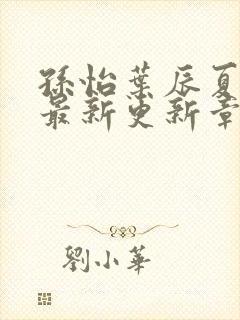 孫怡葉辰夏
最新更新章
劉小華